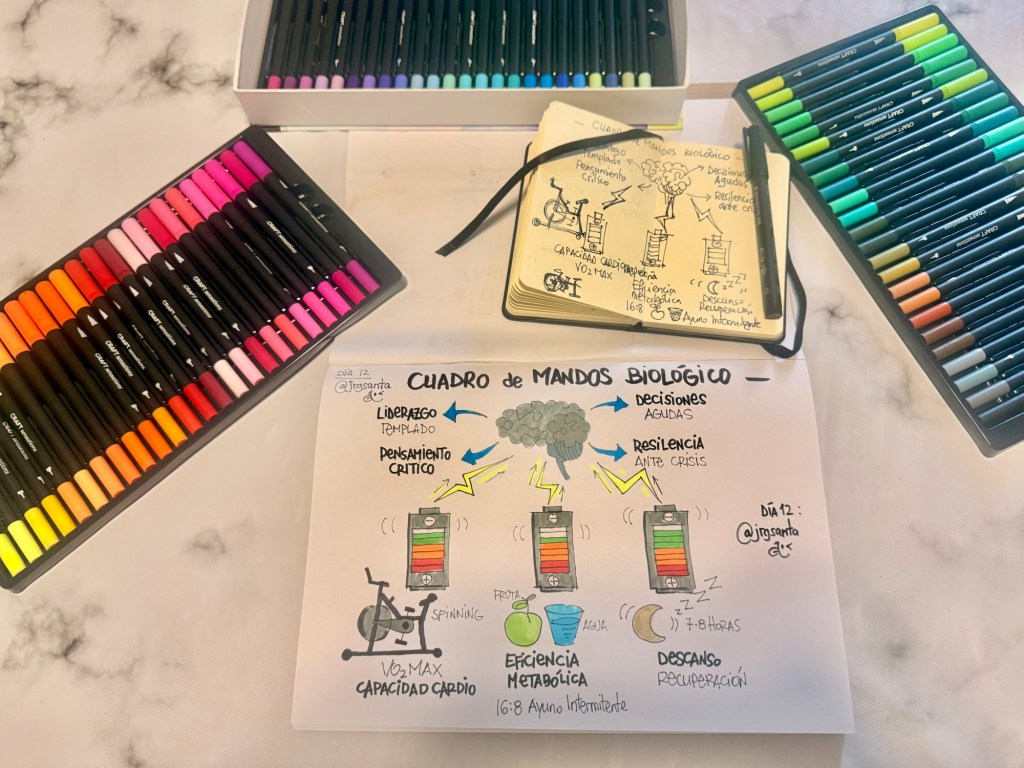 CUADRO de MANDOS BIOLÓGICO
Templado
Pensamiento
Crítico
Decisiones
Agudas
Resiliencia
ante
CAPACIDAD CARDIO
VO2MAX
Eficiencia
Metabólica
16:8
Ayuno Intermitente
zzz
Descanso
Recuperación
DÍA 12
@jrgsanta
CUADRO de MANDOS BIOLÓGICO —
LIDERAZGO
TEMPLADO
PENSAMIENTO
CRITICO
DECISIONES
AGUDAS
RESILENCIA
ANTE CRISIS
DÍA 12:
@jrgsanta
SPINNING
VO2MAX
CAPACIDAD CARDIO
FRUTA
AGUA
EFICIENCIA
METABÓLICA
16:8 Ayuno Intermitente
zzzz
7-8 HORAS
DESCANSO
RECUPERACIÓN
CRAFT sensations